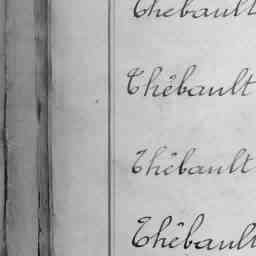 Thébault
Thébault
Thébault
Thébault